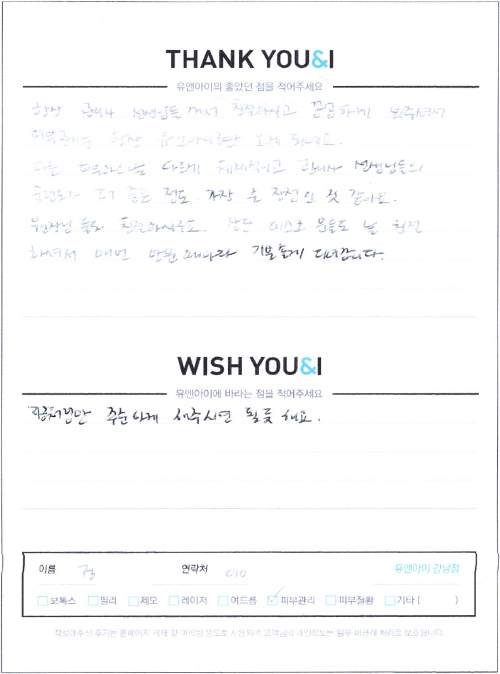 THANK YOU&I
유앤아이의 좋았던 점을 적어주세요
항상 관리사 선생님들께서 친절하시고 꼼꼼하게 봐주셔서
피부관리는 항상 유앤아이로만 오게 되네요.
다른 피부과와는 다르게 체계적이고 관리사 선생님들의
더 좋은 점도 가장 큰 장점인 것 같아요.
원장님들도 친절하시구요. 상담 데스크 분들도 넘 친절
하셔서 매번 방문때마다 기분좋게 다녀갑니다.
WISH YOU&I
유앤아이에 바라는 점을 적어주세요
지금처럼만 꾸준하게 해주시면 될듯 해요.
이름 연락처 010 유앤아이 강남점
보톡스 필러 제모 레이저 여드름 피부관리 피부질환 기타 ( )
작성해주신 후기는 홈페이지 게재 및 마케팅 용도로 사용되며 고객님의 개인정보는 일부 비공개 처리로 보호됩니다.